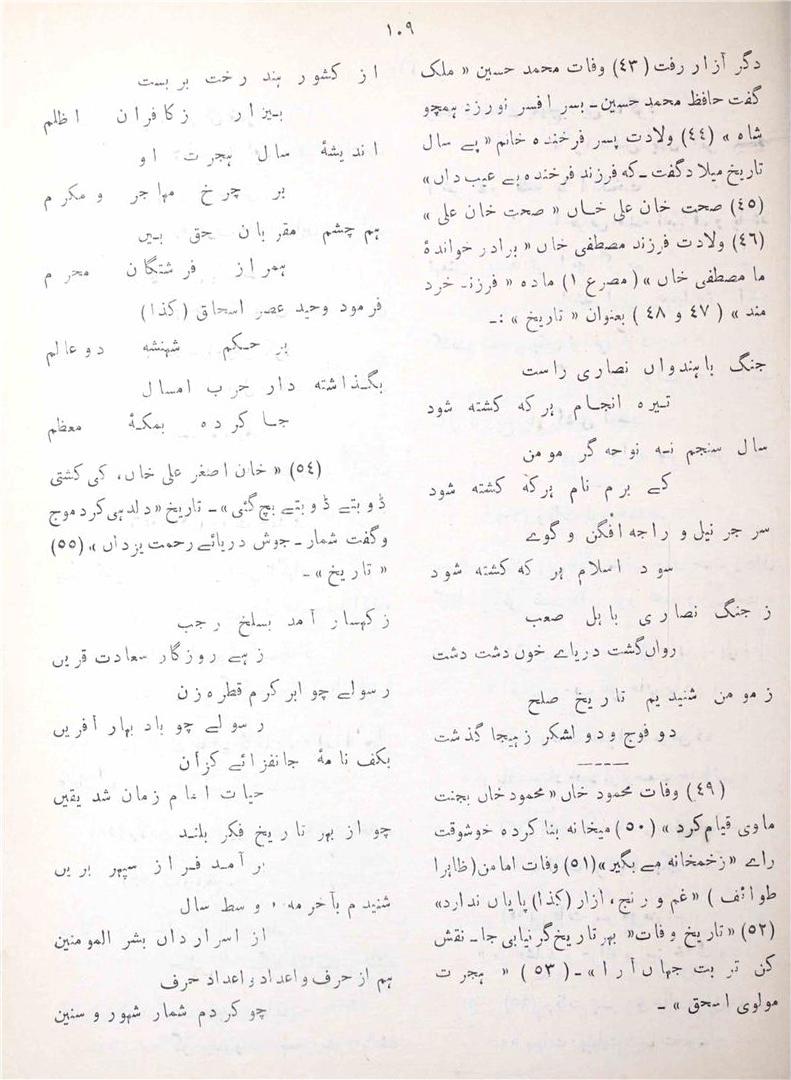 ۱۰۹
دگر آزار رفت (٤٣) وفات محمد حسین « ملک
گفت حافظ محمد حسین ـ بسر افسر نورزد همچو
شاه » (٤٤) ولادت پسر فرخنده خانم « پے سال
تاریخ میلاد گفت ـ که فرزند فرخنده بے عیب داں »
(٤٥) صحت خان علی خاں « صحت خان علی »
(٤٦) ولادت فرزند مصطفی خاں « برادر خواندهٔ
ما مصطفی خاں » (مصرع ۱) ماده « فرزند خرد
مند » (٤٧ و ٤٨) بعنوان « تاریخ » :ـ
جنگ باهندواں نصاری راست
تیره انجام هر که کشته شود
سال سنجم نه نوحه گر مومن
کے برم نام هر که کشته شود
سر جرنیل و راجه افگن و گوے
سود اسلام هر که کشته شود
ز جنگ نصاری باہل صعب
رواں گشت دریاے خوں دشت دشت
ز مومن شنیدیم تاریخ صلح
دو فوج و دو لشکر زهیجا گذشت
(٤٩) وفات محمود خاں « محمود خاں بجنت
ماوی قیام کرد » (٥٠) میخانه بنا کرده خوشوقت
راے « زخمخانه مے بگیر » (٥١) وفات امامن (ظاہرا
طوائف) « غم و رنج، ازار (کذا) پایاں ندارد »
(٥٢) « تاریخ وفات » بهر تاریخ گر نیابی جا ـ نقش
کن تربت جہاں آرا » ـ (٥٣) « هجرت
مولوی اسحق » ـ
از کشور هند رخت بربست
بیزار ز کافران اظلم
اندیشهٔ سال هجرت او
بر چرخ مہاجر و مکرم
هم چشم مقربان حق بیں
همراز فرشتگان محرم
فرمود وحید عصر اسحاق (کذا)
بر حکم شہنشه دو عالم
بگذاشته دار حرب امسال
جا کرده بمکهٔ معظم
(٥٤) « خان اصغر علی خاں، کی کشتی
ڈوبتے ڈوبتے بچ گئی » ـ تاریخ « دلدہی کرد موج
و گفت شمار ـ جوش دریائے رحمت یزداں »، (٥٥)
« تاریخ » ـ
ز کہسار آمد بسلخ رجب
زهے روزگار سعادت قریں
رسولے چو ابر کرم قطره زن
رسولے چو باد بہار آفریں
بکف نامهٔ جانفزائے کزاں
حیات امام زمان شد یقیں
چو از بہر تاریخ فکر بلند
برآمد فراز سپہر بریں
شنیدم بآخر مه و سط سال
از اسرار داں بشر المومنین
هم از حرف و اعداد و اعداد حرف
چو کردم شمار شہور و سنین